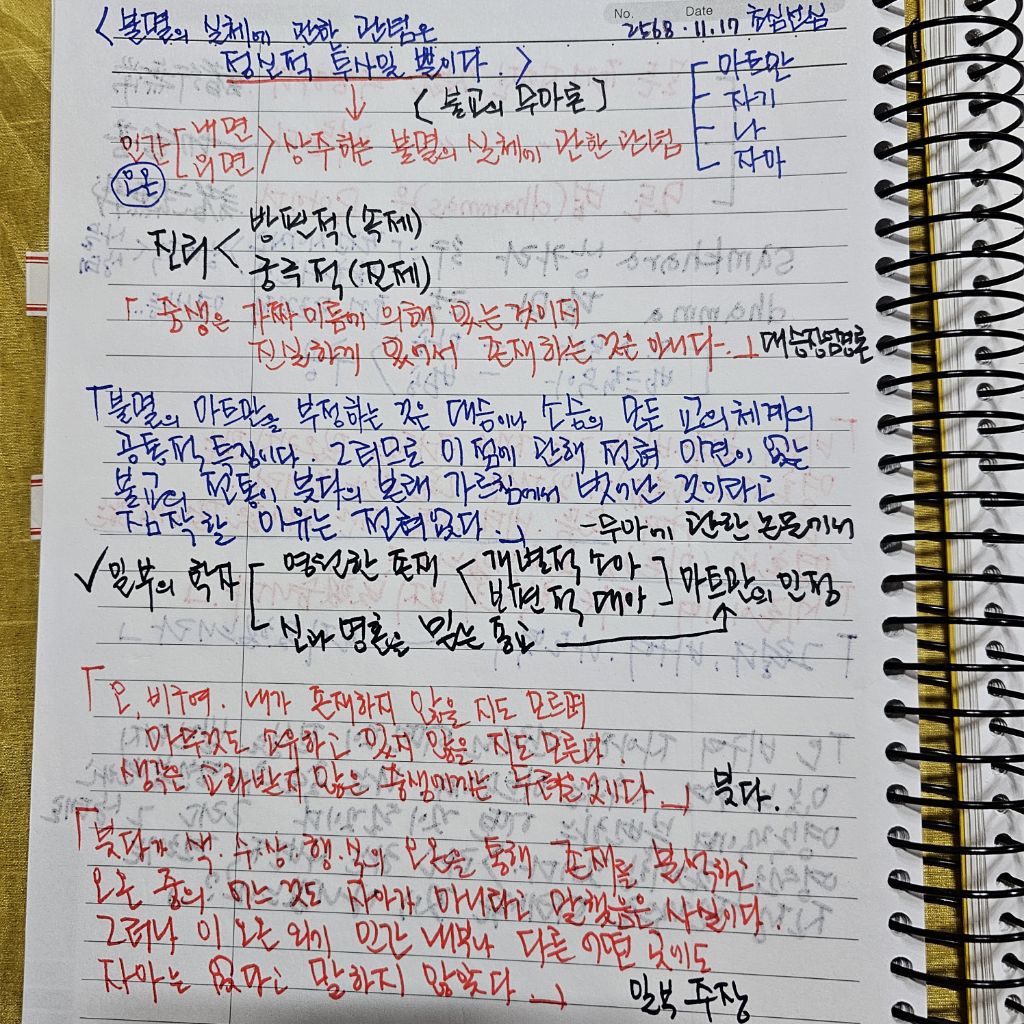 No. Date
2568.11.17 초심선심
<불멸의 실체에 관한 관념은
정신적 투사일 뿐이다.>
↓ <불교의 무아론]
[아트만
자기
나
자아
인간 [내면 외면> 상주하는 불멸의 실체에 관한 관념
오온
진리 < 방편적(속제)
궁극적(진제)
「중생은 가짜이름에 의해 있는것이지
진실하게 있어서 존재하는 것은 아니다.」 대승장엄경론
「불멸의 아트만을 부정하는 것은 대승이나 소승의 모든 교의체계의
공통적 특징이다. 그러므로 이 점에 관해 전혀 이견이 없는
불교의 전통이 붓다의 본래 가르침에서 벗어난 것이라고
짐작할 이유는 전혀없다.」 -무아에 관한 논문에서
✓일부의 학자 [영원한 존재 < 개별적 소아
보편적 대아] 아트만의 인정
신과 영혼을 믿는 종교 →
「오, 비구여. 내가 존재하지 않을 지도 모르며
아무것도 소유하고 있지 않을 지도 모른다.
생각은 교화받지 않은 중생에게는 두려울것이다.」 붓다.
「붓다가 색·수·상·행·식의 오온을 통해 존재를 분석하고
오온 중의 어느 것도 자아가 아니다라고 말했음은 사실이다.
그러나 이 오온 외에 인간 내부나 다른 어떤 곳에도
자아는 없다고 말하지 않았다.」 일부 주장